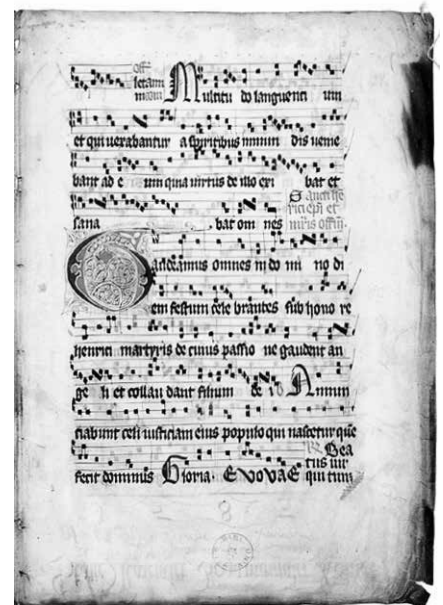 Multitu do languenti um
et qui uexabantur a spiritibus inmun dis ueni e
bant ad e um quia uirtus de illo exi bat et
sana bat om nes
Gaudeamus omnes in do mi no di
em festum cele brantes sub hono re
henrici martyris de cuius passio ne gaudent an
ge li et collau dant filium de i Annun
ciabunt celi iusticiam eius populo qui nascetur que
fecit dominus Gloria. EVOVAE
Bea
tus uir
qui tim